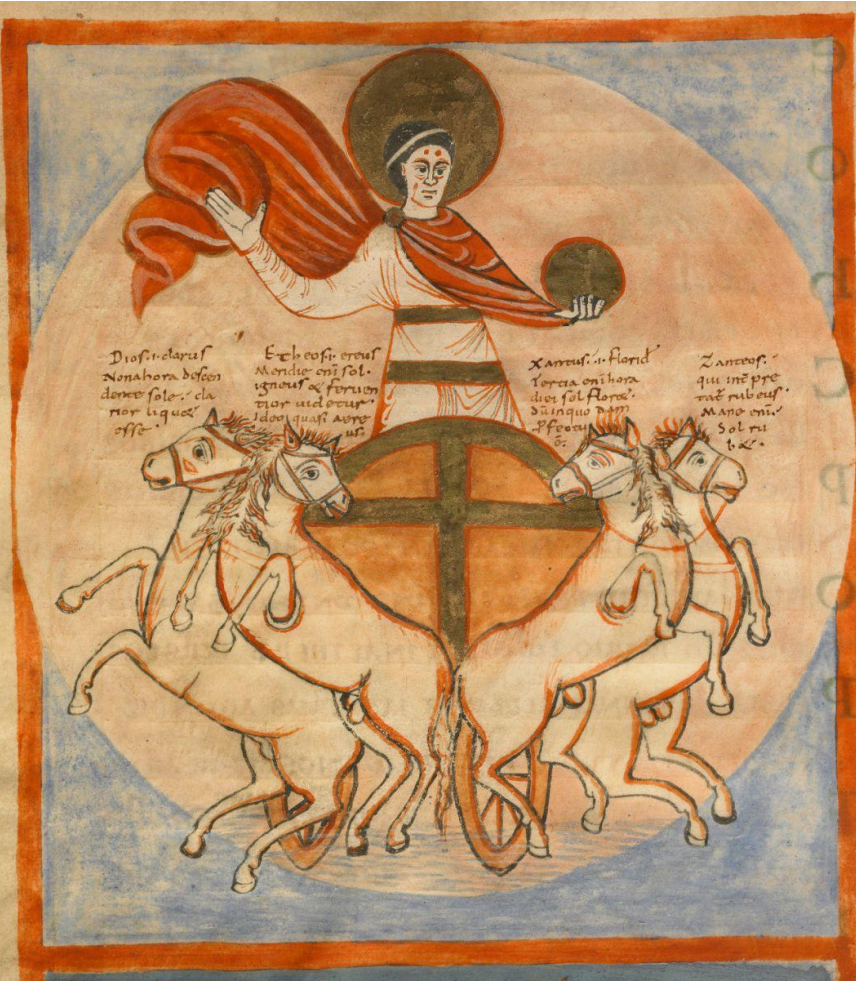 Dios·i·clarus
Nona hora descen
dente sole·cla
rior liquet
esse·
Etheos·i·ereus
Meridie eni sol·
igneus & ferven
tior uidetur·
Ideo quasi aere
us·
Xantus·i·florid
Tercia eni hora
diei sol flore
Zanteos·
qui int pre
tat rubeus·
Mane eni·
Sol ru
b&·